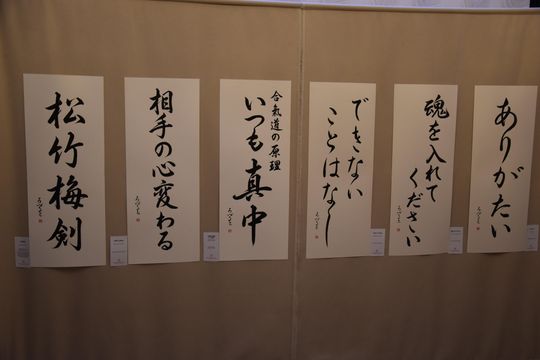 ありがたい
魂を入れて
ください
できない
ことはなし
合氣道の原理
いつも真中
相手の心変わる
松竹梅剣